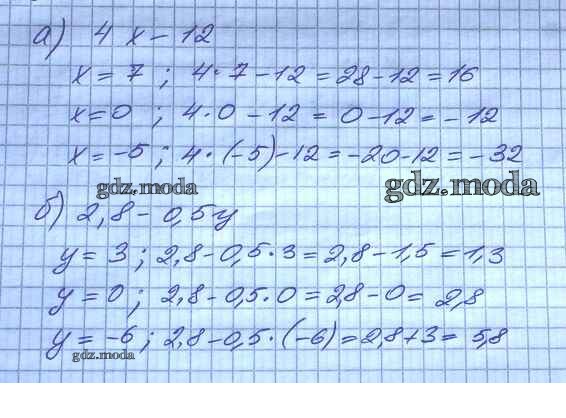 а) 4x - 12
x = 7 ; 4·7 - 12 = 28 - 12 = 16
x = 0 ; 4·0 - 12 = 0 - 12 = - 12
x = -5 ; 4·(-5) - 12 = -20 - 12 = - 32
gdz.moda
gdz.moda
б) 2,8 - 0,5y
y = 3 ; 2,8 - 0,5·3 = 2,8 - 1,5 = 1,3
y = 0 ; 2,8 - 0,5·0 = 2,8 - 0 = 2,8
y = -6 ; 2,8 - 0,5·(-6) = 2,8 + 3 = 5,8
gdz.moda